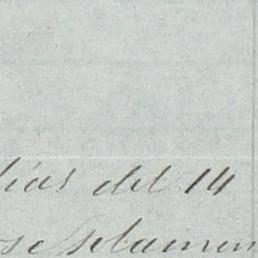 dias del 14
se solamen